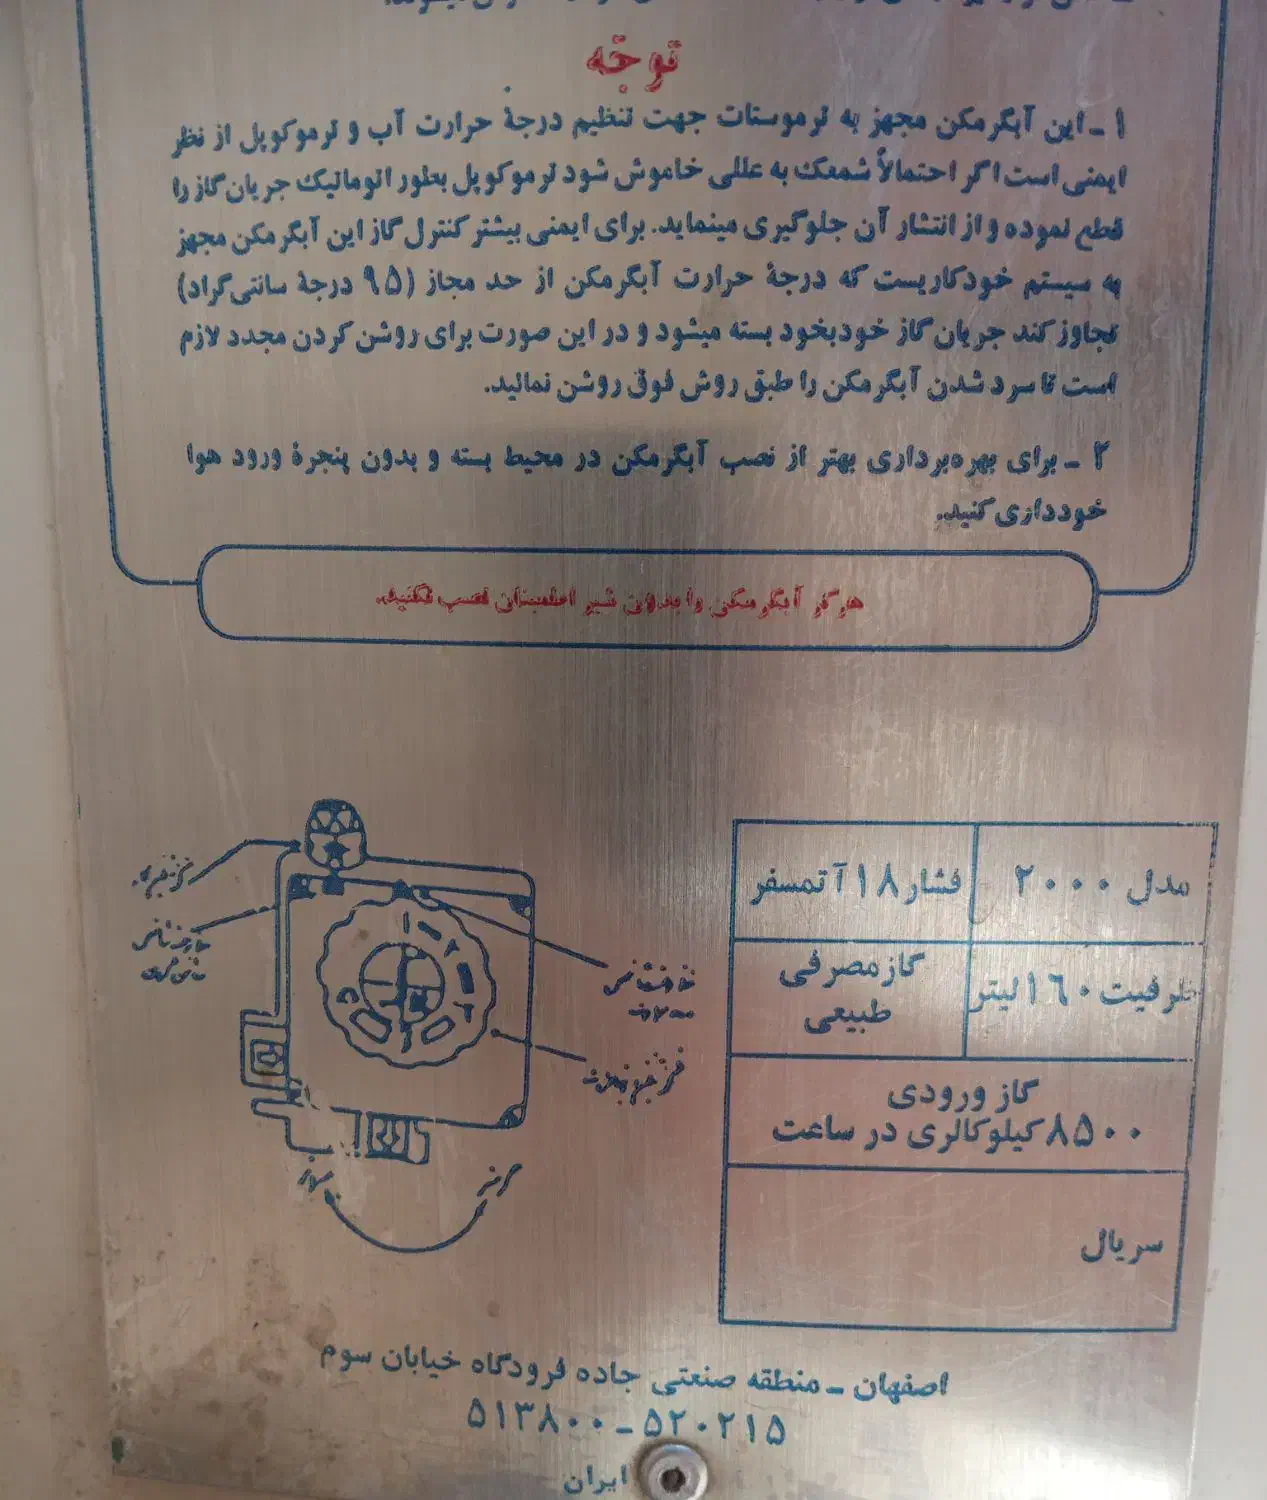 توجّه
۱ ـ این آبگرمکن مجهز به ترموستات جهت تنظیم درجهٔ حرارت آب و ترموکوپل از نظر
ایمنی است اگر احتمالاً شمعک به عللی خاموش شود ترموکوپل بطور اتوماتیک جریان گاز را
قطع نموده و از انتشار آن جلوگیری مینماید. برای ایمنی بیشتر کنترل گاز این آبگرمکن مجهز
به سیستم خودکاریست که درجهٔ حرارت آبگرمکن از حد مجاز (۹۵ درجهٔ سانتی‌گراد)
تجاوز کند جریان گاز خودبخود بسته میشود و در این صورت برای روشن کردن مجدد لازم
است تا سرد شدن آبگرمکن را طبق روش فوق روشن نمائید.
۲ ـ برای بهره‌برداری بهتر از نصب آبگرمکن در محیط بسته و بدون پنجرهٔ ورود هوا
خودداری کنید.
هرگز آبگرمکن را بدون شیر اطمینان نصب نکنید.
مدل ۲۰۰۰
فشار ۱۸ آتمسفر
ظرفیت ۱۶۰ لیتر
گاز مصرفی
طبیعی
گاز ورودی
۸۵۰۰ کیلوکالری در ساعت
سریال
گرمتر
سردتر
اصفهان ـ منطقه صنعتی جاده فرودگاه خیابان سوم
۵۱۳۸۰۰ ـ ۵۲۰۲۱۵
ایران